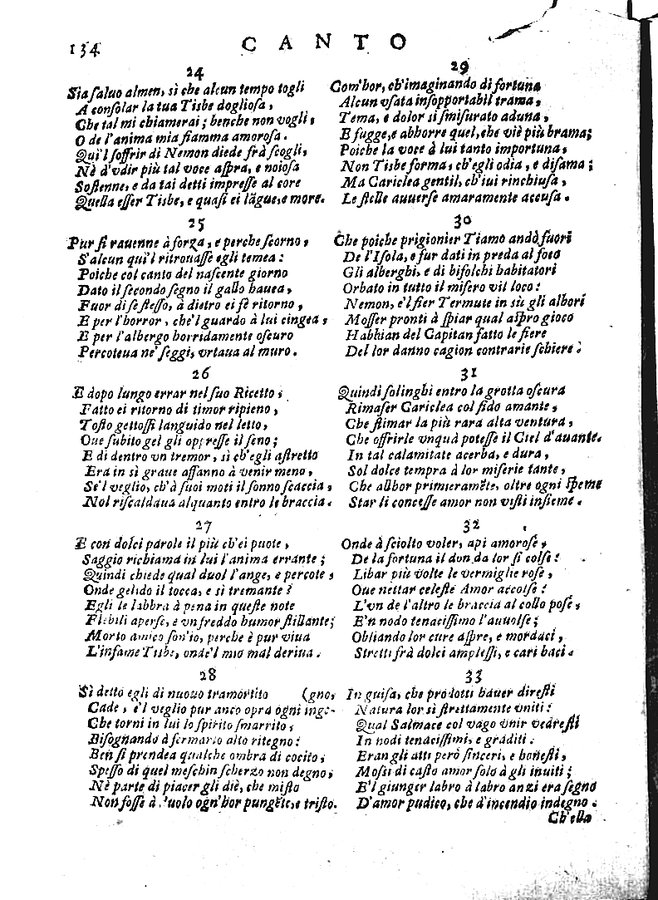 134
CANTO
24
Sia saluo almen, sì che alcun tempo togli
A consolar la tua Tisbe dogliosa,
Che tal mi chiamerai; benche non vogli,
O de l'anima mia fiamma amorosa.
Quì'l soffrir di Nemon diede frà scogli,
Nè d'vdir più tal voce aspra, e noiosa
Sostenne, e da tai detti impresse al core
Quella esser Tisbe, e quasi ei lãgue, e more.
25
Pur si rauenne à forza, e perche scorno,
S'alcun quì'l ritrouasse egli temea:
Poiche col canto del nascente giorno
Dato il secondo segno il gallo hauea,
Fuor di se stesso, à dietro ei fè ritorno,
E per l'horror, che'l guardo à lui cingea,
E per l'albergo horridamente oscuro
Percoteua ne' seggi, vrtaua al muro.
26
E dopo lungo errar nel suo Ricetto,
Fatto ei ritorno di timor ripieno,
Tosto gettossi languido nel letto,
Oue subito gel gli oppresse il seno;
E di dentro vn tremor, sì ch'egli astretto
Era in sì graue affanno à venir meno,
Se'l veglio, ch'à suoi moti il sonno scaccia,
Nol riscaldaua alquanto entro le braccia.
27
E con dolci parole il più ch'ei puote,
Saggio richiama in lui l'anima errante;
Quindi chiede qual duol l'ange, e percote,
Onde gelido il tocca, e sì tremante?
Egli le labbra à pena in queste note
Flebili aperse, e vn freddo humor stillante;
Morto amico son'io, perche è pur viua
L'infame Tisbe, onde'l mio mal deriua.
28
Sì detto egli di nuouo tramortito
Cade, e'l veglio pur anco opra ogni inge- (gno,
Che torni in lui lo spirito smarrito,
Bisognando à fermarlo alto ritegno:
Ben si prendea qualche ombra di cocito,
Spesso di quel meschin scherzo non degno,
Nè parte di piacer gli diè, che misto
Non fosse à duolo ogn'hor pungẽte, e tristo.
29
Com'hor, ch'imaginando di fortuna
Alcun vsata insopportabil trama,
Tema, e dolor sì smisurato aduna,
E fugge, e abhorre quel, che viè più brama;
Poiche la voce à lui tanto importuna,
Non Tisbe forma, ch'egli odia, e disama;
Ma Cariclea gentil, ch'iui rinchiusa,
Le stelle auuerse amaramente accusa.
30
Che poiche prigionier Tiamo andò fuori
De l'Isola, e fur dati in preda al foco
Gli alberghi, e di bifolchi habitatori
Orbato in tutto il misero vil loco:
Nemon, e'l fier Termute in sù gli albori
Mosser pronti à spiar qual aspro gioco
Habbian del Capitan fatto le fiere
Del lor danno cagion contrarie schiere.
31
Quindi solinghi entro la grotta oscura
Rimaser Cariclea col fido amante,
Che stimar la più rara alta ventura,
Che offrirle vnquà potesse il Ciel d'auante.
In tal calamitate acerba, e dura,
Sol dolce tempra à lor miserie tante,
Che allhor primieramẽte, oltre ogni speme
Star li concesse amor non visti insieme.
32
Onde à sciolto voler, api amorose,
De la fortuna il don da lor si colse:
Libar più volte le vermiglie rose,
Oue nettar celeste Amor accolse:
L'vn de l'altro le braccia al collo pose,
E'n nodo tenacissimo l'auuolse;
Obliando lor cure aspre, e mordaci,
Stretti frà dolci amplessi, e cari baci.
33
In guisa, che prodotti hauer diresti
Natura lor sì strettamente vniti:
Qual Salmace col vago vnir vedresti
In nodi tenacissimi, e graditi.
Eran gli atti però sinceri, e honesti,
Mossi di casto amor solo à gli inuiti;
E'l giunger labro à labro anzi era segno
D'amor pudico, che d'incendio indegno.
Ch'ella